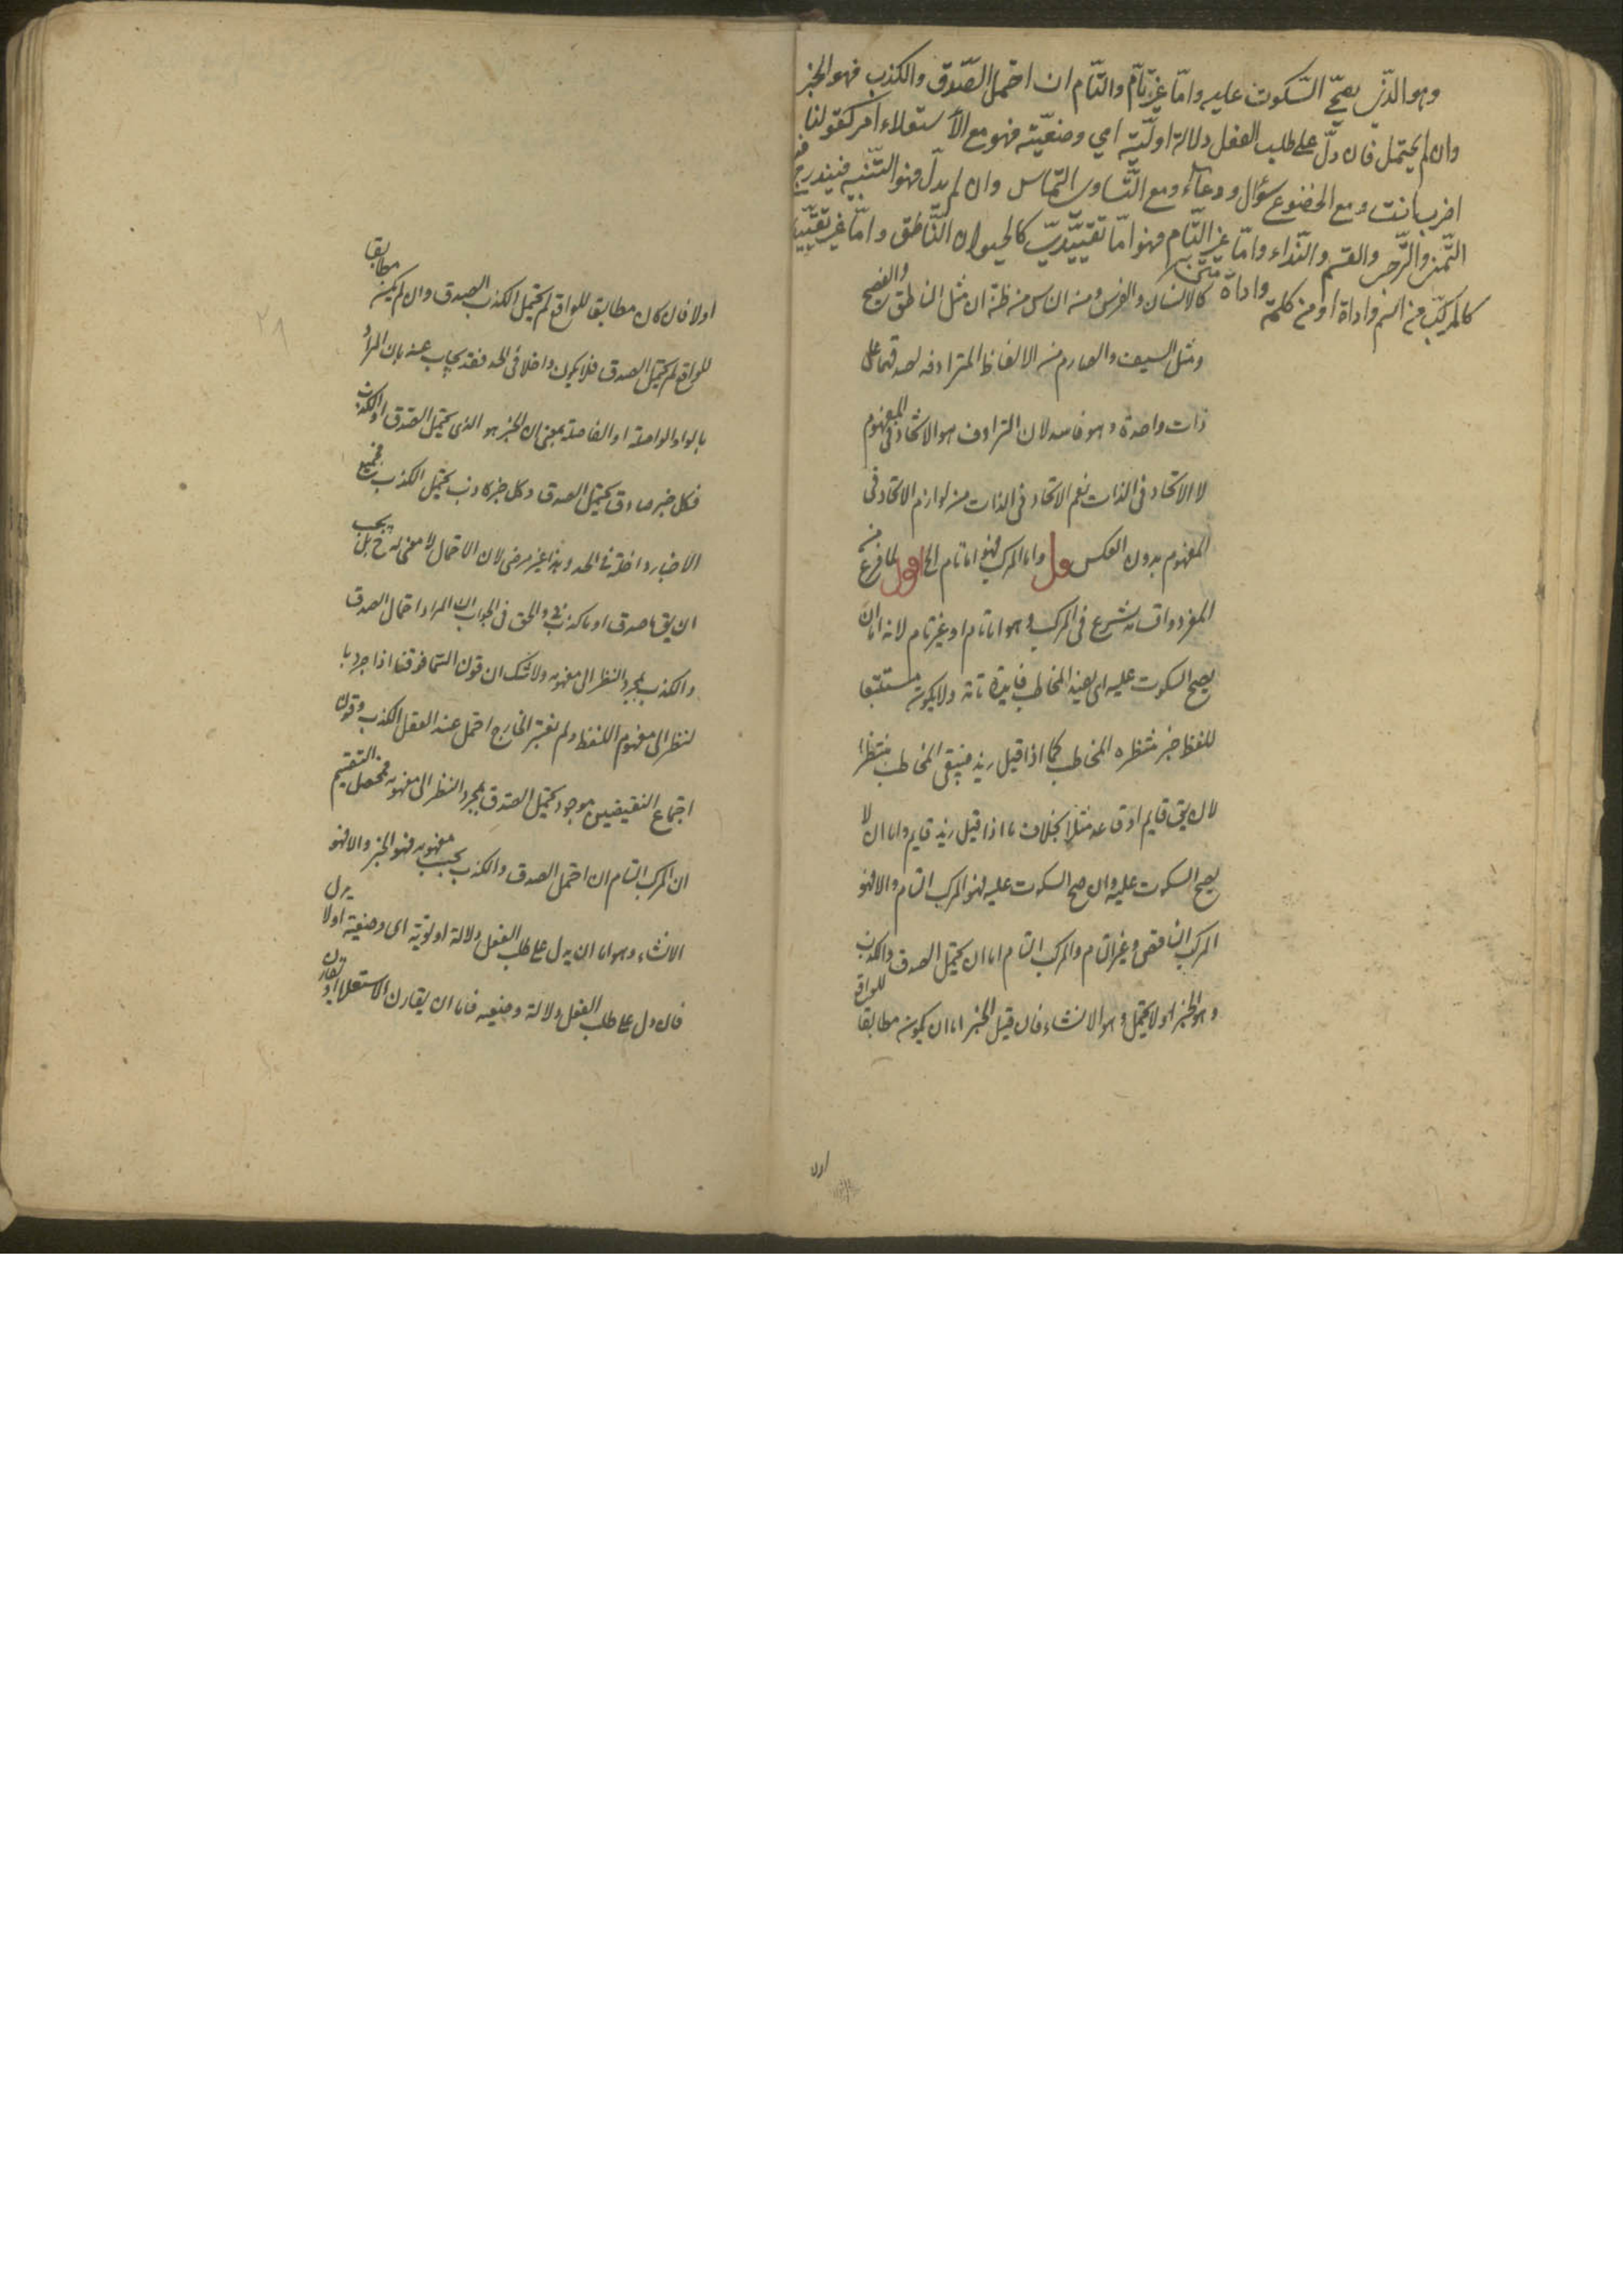 وهو الذی یصحّ السّکوت علیه وامّا غیر تامّ والتّام ان احتمل الصّدق والکذب فهو الخبر
وان لم یحتمل فان دلّ علی طلب الفعل دلالة اولیّة ای وضعیّة فهو مع الأستعلاء امر کقولنا
اضرب انت ومع الخضوع سؤال ودعاء ومع التّساوی التماس وان لم یدلّ فهو التّنبیه فیندرج فیه
التّمنی والتّرجی والقسم والنّداء وامّا غیر التّام فهو امّا تقییدیّ کالحیوان النّاطق وامّا غیر تقییدی
کالمرکّب من اسم واداة او من کلمة واداة
کالانسان والفرس ومن الناس من ظن ان مثل الناطق والفصیح
ومثل السیف والصارم من الالفاظ المترادفه لصدقهما علی
ذات واحدة وهو فاسد لان الترادف هو الاتحاد فی المفهوم
لا الاتحاد فی الذات نعم الاتحاد فی الذات من لوازم الاتحاد فی
المفهوم بدون العکس قال واما المرکب فهو اما تام الخ اقول لما فرغ من
المفرد واقسامه شرع فی المرکب وهو اما تام او غیر تام لانه اما ان
یصح السکوت علیه ای یفید المخاطب فایدة تامة ولا یکون مستتبعا
للفظ خبر منتظره المخاطب کما اذا قیل زید فیبقی المخاطب منتظرا
لان یق قایم او قاعد مثلا بخلاف ما اذا قیل زید قایم واما ان لا
یصح السکوت علیه وان صح السکوت علیه فهو المرکب التام والا فهو
المرکب الناقص وغیر التام والمرکب التام اما ان یحتمل الصدق والکذب
وهو الخبر او لا یحتمل وهو الانشاء فان قیل الخبر اما ان یکون مطابقا للواقع
اولا
اولا فان کان مطابقا للواقع لم یحتمل الکذب الصدق وان لم یکن مطابقا
للواقع لم یحتمل الصدق فلا یکون داخلا فی الحد فقد یجاب عنه بان المراد
بالواو الواصلة او الفاصلة بمعنی ان الخبر هو الذی یحتمل الصدق او الکذب
فکل خبر صادق یحتمل الصدق وکل خبر کاذب یحتمل الکذب فجمیع
الاخبار داخلة فی الحد وهذا غیر مرضی لان الاحتمال لا معنی له ح بل یجب
ان یق ما صدق او ما کذب والحق فی الجواب ان المراد احتمال الصدق
والکذب بمجرد النظر الی مفهومه ولا شک ان قولنا السماء فوقنا اذا جردنا
لنظر الی مفهوم اللفظ ولم نعتبر الخارج احتمل عند العقل الکذب وقولنا
اجتماع النقیضین موجود یحتمل الصدق بمجرد النظر الی مفهومه فمحصل التقسیم
ان المرکب التام ان احتمل الصدق والکذب بحسب مفهومه فهو الخبر والا فهو
الانشاء وهو اما ان یدل علی طلب الفعل دلالة اولویة ای وضعیة اولا یدل
فان دل علی طلب الفعل دلالة وضعیه فاما ان یقارن الاستعلا او یقارن